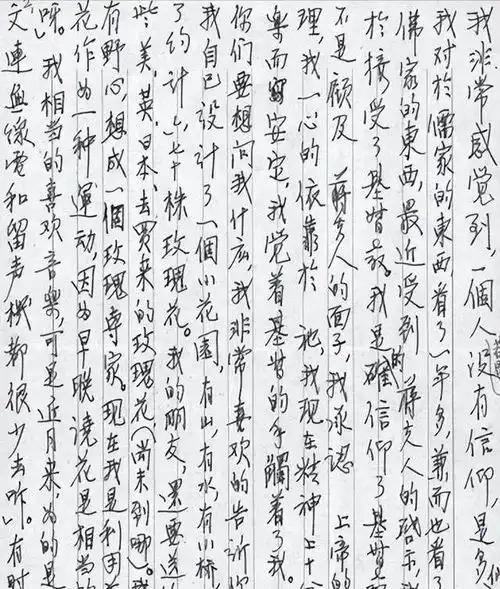 我非常感觉到,一個人没有信仰是多
我对於儒家的東西,看了一年多,兼而也看了
佛家的東西,最近受到蒋夫人的啓示,我
於接受了基督教。我是的確信仰了基督
不是顧及 蒋夫人的面子,我承認 上帝的
理,我一心的依靠於 祂,我現在精神上十分
樂而安定,我觉着基督的手觸着了我。
你们要想问我什庅,我非常喜欢的告訴你
我自己設計了一個小花園,有山,有水,有小橋,
了约计六、七十株玫瑰花。我的朋友,還要送
些美、英、日本、去買来的玫瑰花(尚未到哪)。我
有野心,想成一個玫瑰專家。現在我是利用
花作为一种運动,因为早晚澆花是相当的
呀。我相当的喜欢音樂,可是近月来,为的是
文連無線電和留声機都很少去听。有时